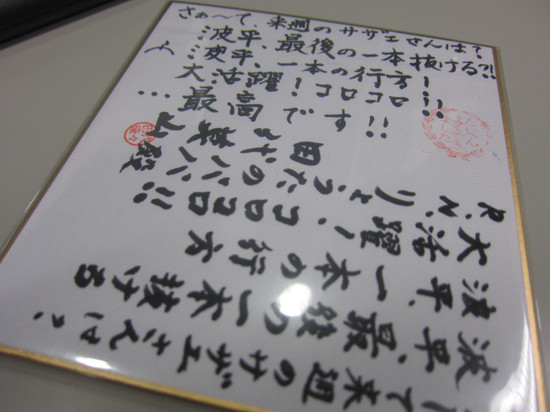 さぁ〜て、来週のサザエさんは？
…波平、最後の一本抜ける?!
…波平、一本の行方ー…
大活躍！コロコロ!!
…最高です
て来週のサザエさんは、
波平、最後の一本抜ける
波平、一本の行方
大活躍！コロコロ!!
R.N.りょうたのパパ殿